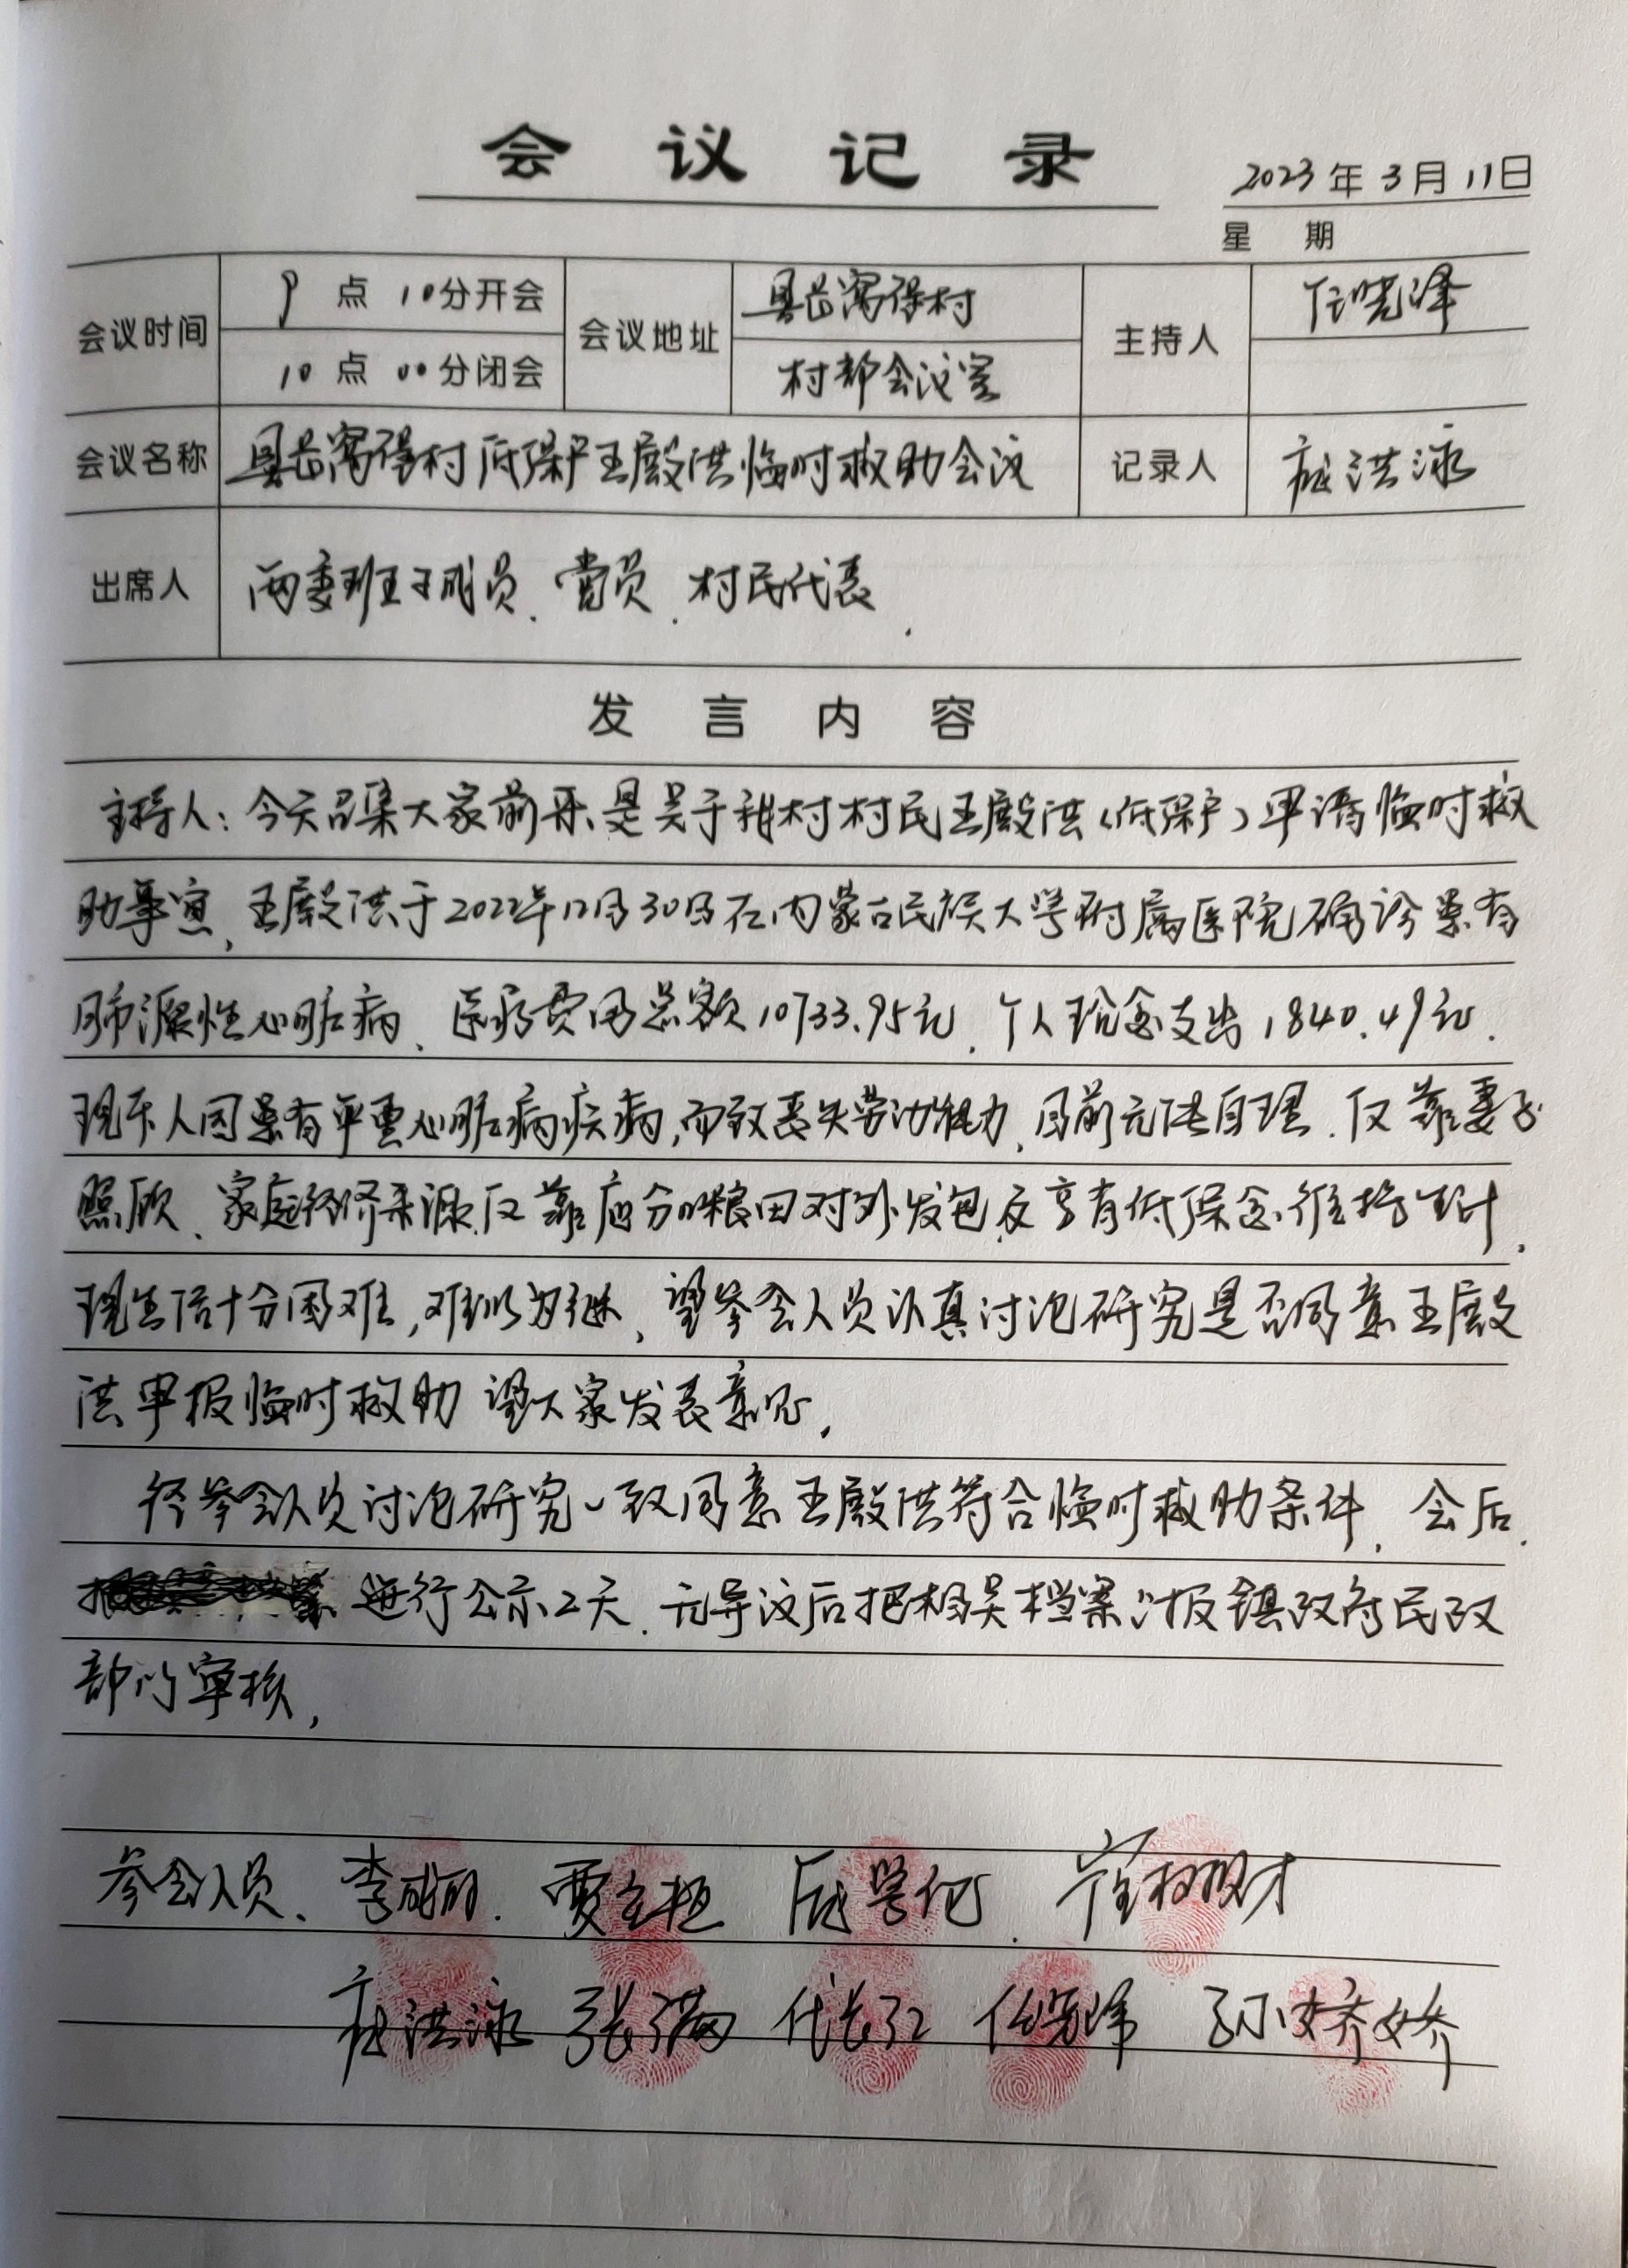 会议记录
2023年3月11日
星 期
会议时间
9点10分开会
10点00分闭会
会议地址
村
村部会议室
主持人
任晓泽
会议名称
村低保户王殿洪临时救助会议
记录人
洪泳
出席人
两委班子成员、党员、村民代表.
发言内容
主持人:今天召集大家前来是关于我村村民王殿洪(低保户)申请临时救
助事宜,王殿洪于2022年12月30日在内蒙古民族大学附属医院确诊患有
肺源性心脏病、医疗费用总额10733.95元、个人现金支出1840.49元.
现本人因患有严重心脏病疾病,而致丧失劳动能力、目前无法自理.仅靠妻子
照顾、家庭经济来源仅靠应分口粮田对外发包及享有低保金维持生计、
现生活十分困难,难以为继、望参会人员认真讨论研究是否同意王殿
洪申报临时救助 望大家发表意见,
经参会人员讨论研究一致同意王殿洪符合临时救助条件、会后.
进行公示2天.无异议后把相关档案上报镇政府民政
部门审核,
参会人员、李 贾 学 崔树财
洪泳 张满 代长江 任晓泽 孙娇娇